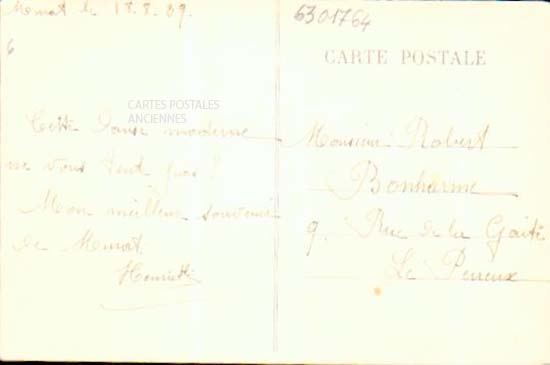 Menat le 18.8.09.
6301764
6
CARTE POSTALE
CARTES POSTALES
ANCIENNES
Cette Danse moderne
ne vous tent pas ?
Mon meilleur souvenir
de Menat.
Henriette
Monsieur Robert
Bonharme
9. Rue de la Gaité
Le Perreux